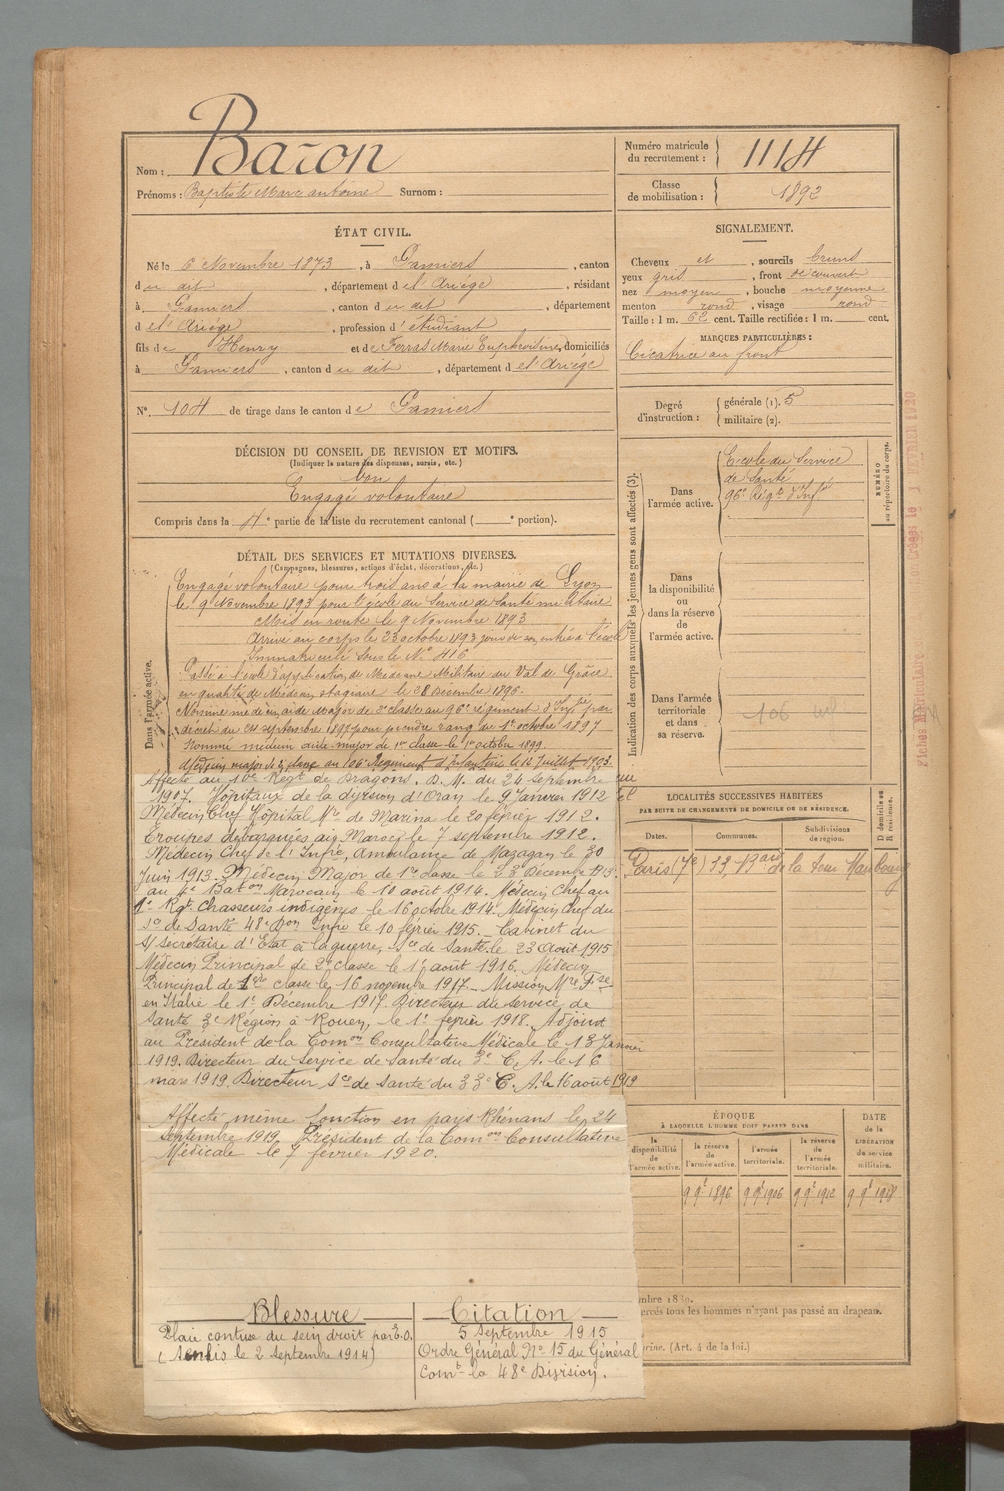 Nom : Baron
Prénoms : Baptiste Marc antoine Surnom :
Numéro matricule du recrutement : 1114
Classe de mobilisation : 1892
ÉTAT CIVIL.
Né le 6 Novembre 1873, à Pamiers, canton
d u dit, département d e l'Ariège, résidant
à Pamiers, canton d u dit, département
d e l'Ariège, profession d'étudiant
fils de Henry et de Ferras Marie Euphrosine, domiciliés
à Pamiers, canton d u dit, département d e l'Ariège
N° 104 de tirage dans le canton de Pamiers
SIGNALEMENT.
Cheveux et, sourcils bruns
yeux gris, front découvert
nez moyen, bouche moyenne
menton rond, visage rond
Taille : 1 m. 62 cent. Taille rectifiée : 1 m. cent.
MARQUES PARTICULIÈRES :
Cicatrice au front
Degré d'instruction : générale (1). 5
militaire (2).
DÉCISION DU CONSEIL DE REVISION ET MOTIFS.
(Indiquer la nature des dispenses, sursis, etc.)
bon
Engagé volontaire
Compris dans la 4e partie de la liste du recrutement cantonal ( e portion).
DÉTAIL DES SERVICES ET MUTATIONS DIVERSES.
(Campagnes, blessures, actions d'éclat, décorations, etc.)
Dans l'armée active.
Engagé volontaire pour trois ans à la mairie de Lyon
le 9 Novembre 1893 pour l'école du Service de Santé militaire
Mis en route le 9 Novembre 1893
Arrivé au corps le 23 octobre 1893 jour de son entrée à l'école
Immatriculé sous le N° 416
Passé à l'école d'application de Médecine Militaire du Val de Grâce
en qualité de Médecin stagiaire le 28 Décembre 1896.
Nommé médecin aide Major de 2e classe au 96e régiment d'Infie par
décret du 24 septembre 1897 pour prendre rang du 1er octobre 1897
Nommé médecin aide-major de 1re classe le 1er octobre 1899.
Médecin major de 2e classe au 106e Régiment d'Infanterie le 12 Juillet 1903.
Affecté au 10e Regt de Dragons. D. M. du 24 septembre
1907. Hôpitaux de la division d'Oran le 9 Janvier 1912
Médecin Chef Hôpital Mre de Marnia le 20 février 1912.
Troupes débarquées au Maroc le 7 septembre 1912.
Médecin Chef de l'Infie, Ambulance de Mazagan le 30
Juin 1913. Médecin Major de 1re classe le 23 Décembre 1913.
au 4e Baton Marocain le 10 août 1914. Médecin Chef au
1e Rgt Chasseurs indigènes le 16 octobre 1914. Médecin Chef du
Sce de Santé 48e Don Infie le 10 février 1915. Cabinet du
S/ secrétaire d'Etat à la guerre, Sce de Santé le 23 Août 1915
Médecin Principal de 2e classe le 1er août 1916. Médecin
Principal de 1ère classe le 16 novembre 1917. Mission Mre Fse
en Italie le 1er Décembre 1917. Directeur du service de
Santé 3e Région à Rouen, le 1er février 1918. Adjoint
au Président de la Comon Consultative Médicale le 13 Janvier
1919. Directeur du Service de Santé du 3e C. A. le 16
mars 1919. Directeur Sce de Santé du 33e C. A. le 16 août 1919
Affecté même fonction en pays Rhénans le 24
septembre 1919. Président de la Comon Consultative
Médicale le 7 février 1920.
Blessure
Plaie contuse du sein droit par
(Senlis le 2 septembre 1914)
Citation
5 Septembre 1915
Ordre Général N° 15 du Général
Comt la 48e Division.
Indication des corps auxquels les jeunes gens sont affectés (3).
Dans l'armée active.
École du Service
de Santé
96e Régt d'Infie
NUMÉRO au répertoire du corps.
Dans la disponibilité ou dans la réserve de l'armée active.
Dans l'armée territoriale et dans sa réserve.
106
LOCALITÉS SUCCESSIVES HABITÉES
PAR SUITE DE CHANGEMENTS DE DOMICILE OU DE RÉSIDENCE.
Dates. Communes. Subdivisions de région. D domicile ou R résidence.
Paris (7e) 33, Bard de la tour Maubourg
ÉPOQUE
À LAQUELLE L'HOMME DOIT PASSER DANS
la disponibilité de l'armée active. la réserve de l'armée active. l'armée territoriale. la réserve de l'armée territoriale.
DATE de la LIBÉRATION du service militaire.
9 9e 1896 9 9e 1906 9 9e 1912 9 9e 1918
ercés tous les hommes n'ayant pas passé au drapeau.
(Art. 4 de la loi.)